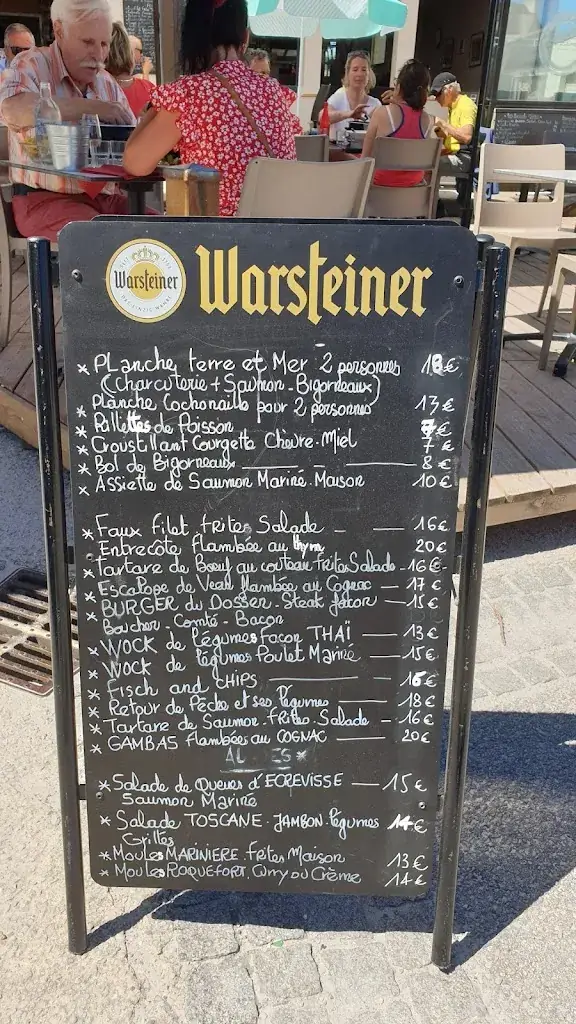 Warsteiner
Warsteiner
* Planche terre et Mer 2 personnes 18€
(Charcuterie + Saumon - Bigorneaux)
* Planche Cochonaille pour 2 personnes 13€
* Rillettes de Poisson 7€
* Croustillant Courgette Chèvre-Miel 7€
* Bol de Bigorneaux 8€
* Assiette de Saumon Mariné Maison 10€
* Faux filet frites Salade 16€
* Entrecôte flambée au thym 20€
* Tartare de Bœuf au couteau frites Salade 16€
* Escalope de Veau flambée au Cognac 17€
* BURGER du Dossen - Steak façon 15€
Boucher - Comté - Bacon
* WOCK de légumes façon THAÏ 13€
* WOCK de légumes Poulet Mariné 15€
* Fisch and CHIPS 16€
* Retour de Pêche et ses légumes 18€
* Tartare de Saumon frites Salade 16€
* GAMBAS flambées au COGNAC 20€
* Salade de Queues d'ECREVISSE 15€
Saumon Mariné
* Salade TOSCANE - JAMBON légumes 14€
Grillés
* Moules MARINIERE frites Maison 13€
* Moules ROQUEFORT, Curry ou Crème 14€